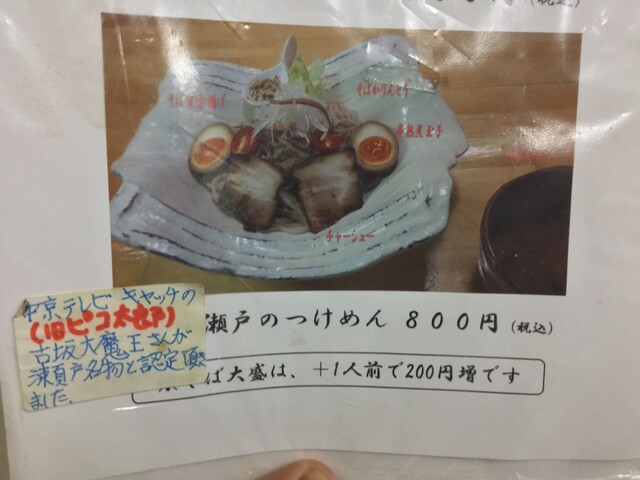 (税込)
そばかりんとう
半熟煮玉子
チャーシュー
瀬戸のつけめん 800円 (税込)
そば大盛は、+1人前で200円増です
中京テレビ キャッチの
(旧ピコ太郎)
古坂大魔王さんが
瀬戸名物と認定頂き
ました。